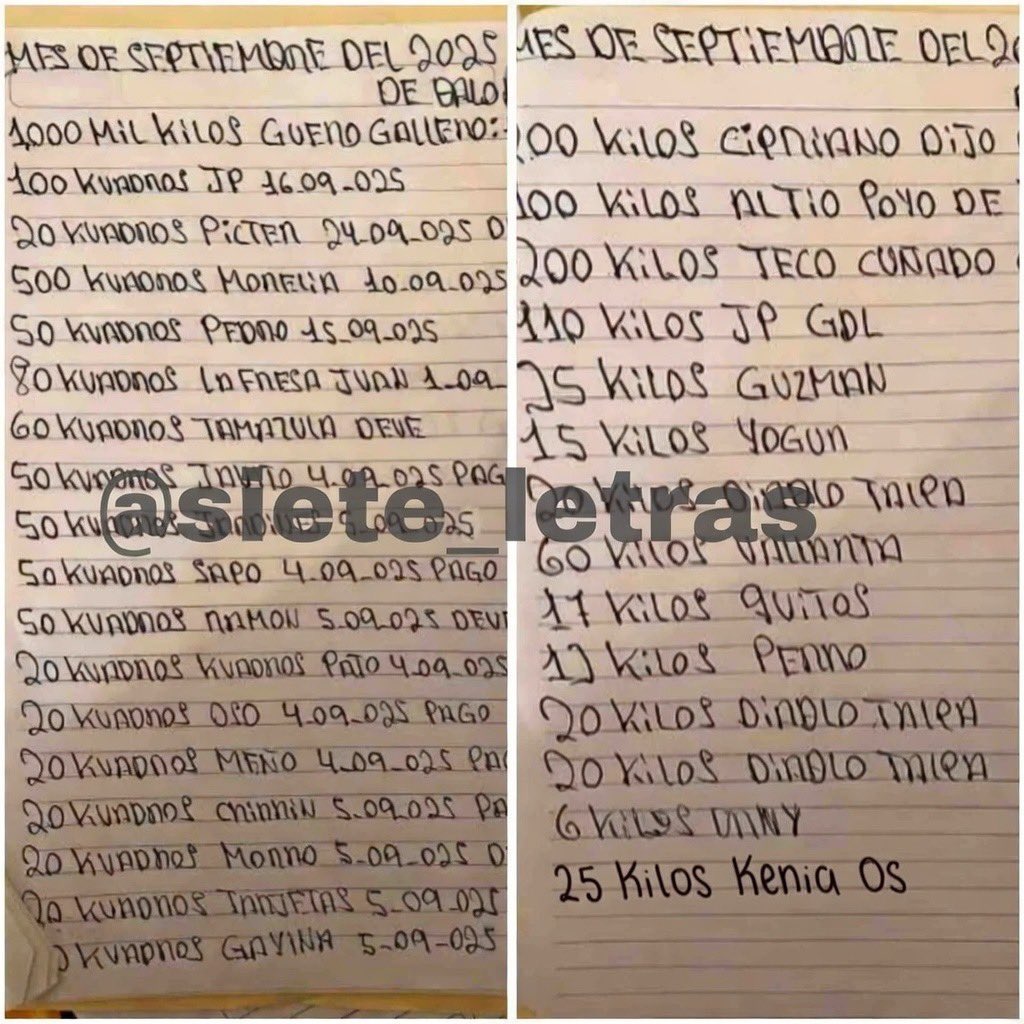 MES DE SEPTIEMBRE DEL 2025
DE BALO
1000 MIL KILOS GUERO GALLERO:
100 KUADROS JP 16.09-025
20 KUADROS PICTER 24.09-025 D
500 KUADROS MORELIA 10.09-025
50 KUADROS PEDRO 15-09-025
80 KUADROS LA FRESA JUAN 1-09-
60 KUADROS TAMAZULA DEVE
50 KUADROS 4.09-025 PAG
50 5-09-025
50 KUADROS SAPO 4-09-025 PAGO
50 KUADROS RAMON 5.09.025 DEVE
20 KUADROS KUADROS PATO 4.09-025
20 KUADROS OSO 4.09-025 PAGO
20 KUADROS MEÑO 4-09-025 PAG
20 KUADROS CHIRRIN 5.09.025 PA
20 KUADROS MORRO 5-09-025 D
20 KUADROS TARJETAS 5-09-025
KUADROS GAYINA 5-09-025
MES DE SEPTIEMBRE DEL 20
00 KILOS CIPRIANO DIJO
100 KILOS ALTIO POYO DE
200 KILOS TECO CUÑADO
110 KILOS JP GDL
35 KILOS GUZMAN
15 KILOS YOGUR
20 KILOS DIABLO TALPA
60 KILOS VALLARTA
17 KILOS QUITOS
13 KILOS PERRO
20 KILOS DIABLO TALPA
20 KILOS DIABLO TALPA
6 KILOS DANY
25 Kilos Kenia Os
@siete_letras